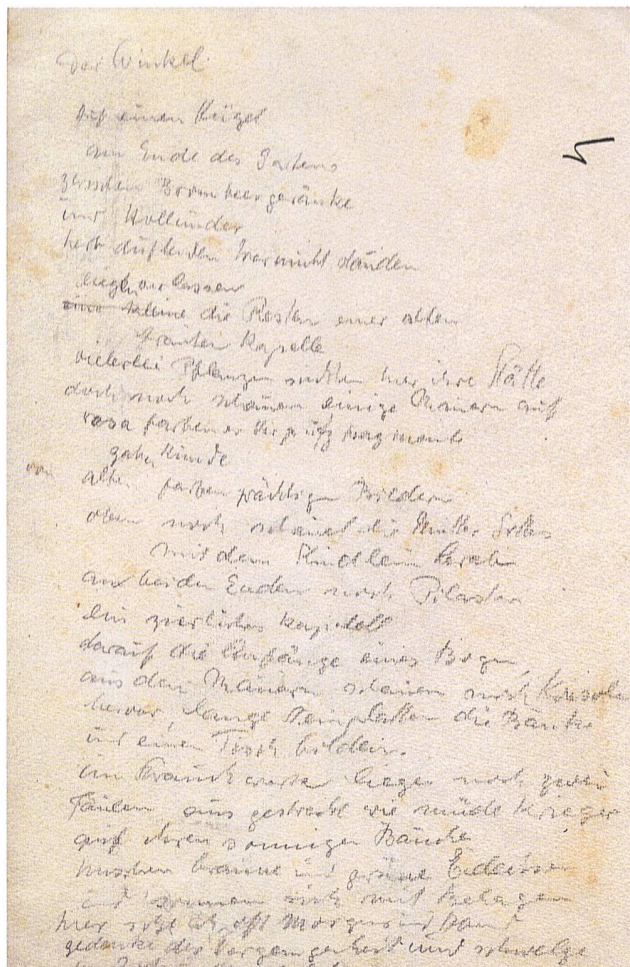 Der Winkel
Auf einem Hügel
am Ende des Gartens
zwischen Brombeergeränke
und Hollunder
herb duftenden Wermuthstauden
liegen verlassen
eine kleine die Resten einer alten
Kapelle
vielerlei Pflanzen suchten hier ihre Stätte
doch noch stehen einige Mauern auf
rosa farbener Verputz fragment
geben Kunde
von
alten farbenprächtigen Bildern
oben noch schauet die Mutter Gottes
mit dem Kindlein herab
an beiden Enden noch Pilaster
ein zierliches Kapitell
darauf die Anfänge eines Bogen
aus den Mauern schauen noch Konsolen
hervor, lange Steinplatten die Bänke
und einen Tisch bilden.
im liegen noch zwei
Säulen ausgestreckt wie müde Krieger
auf ihren sonnigen Bäuche
huschen braune und grüne Eidechsen
und sonnen sich mit Behagen
hier oft Morgens und
gedenke der Vergangenheit und schwelge